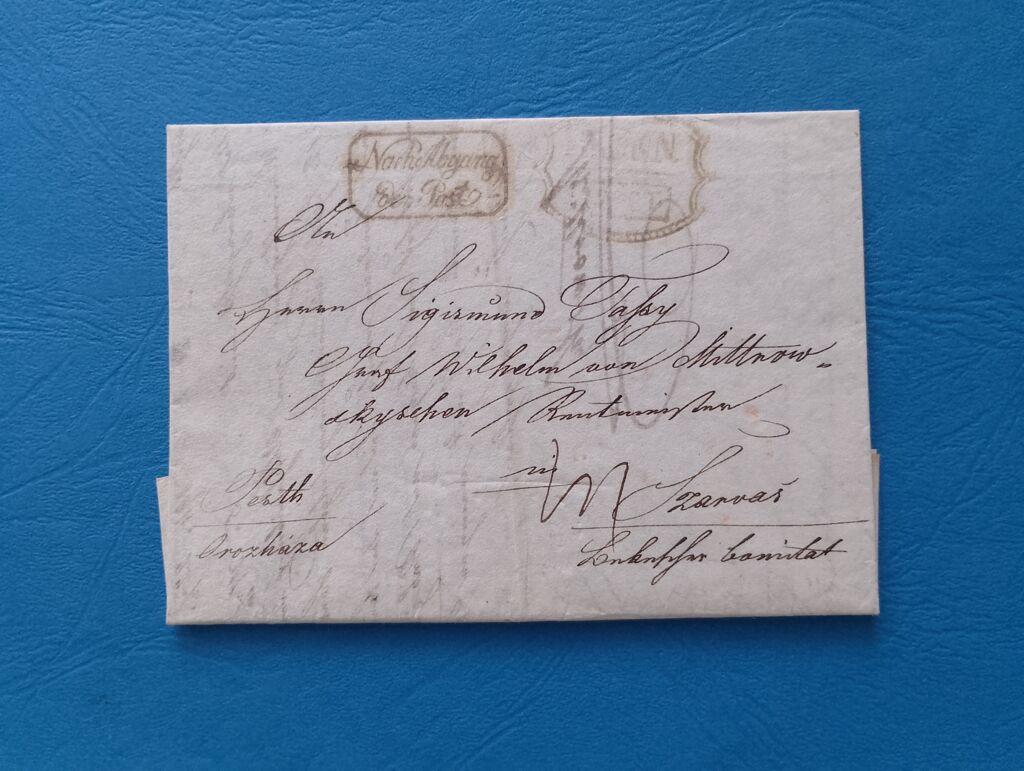 Nach Abgang
der Post
An
Herrn Sigismund Tassy
Graf Wilhelm von Mittrow=
skyschen Rentmeister
in Szarvas
Pesth
Oroshaza
Bekescher Comitat